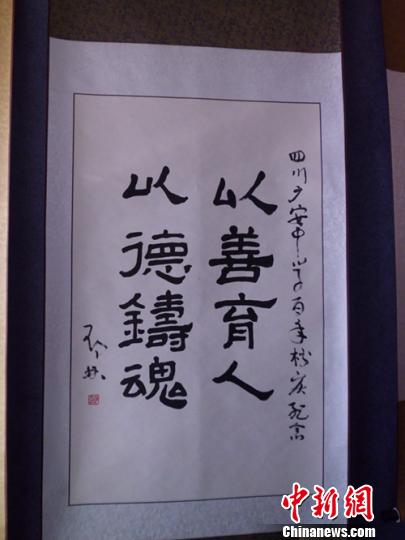 四川广安中学百年校庆纪念
以善育人
以德鑄魂
中新网
Chinanews.com